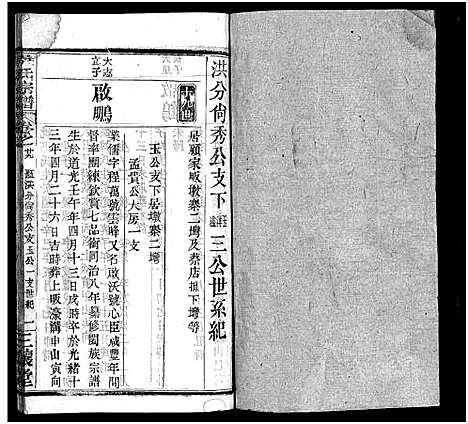 洪分尙秀公支下三公世系紀
居顧家畈墩寨二塆及蔡店坦下塆等
玉公支下居墩寨二塆
孟貫公大房一支
大志立子
啟鵬
業儒字程萬號雲峰又名啟沃號心臣咸豐年間
督率團練欽賞七品銜同治八年纂修闔族宗譜
生於道光壬午年四月十三日戌時卒於光緒十
三年四月二十六日吉時葬上畈濠溝中山寅向
氏宗譜
洪分尙秀公支玉公一支世紀